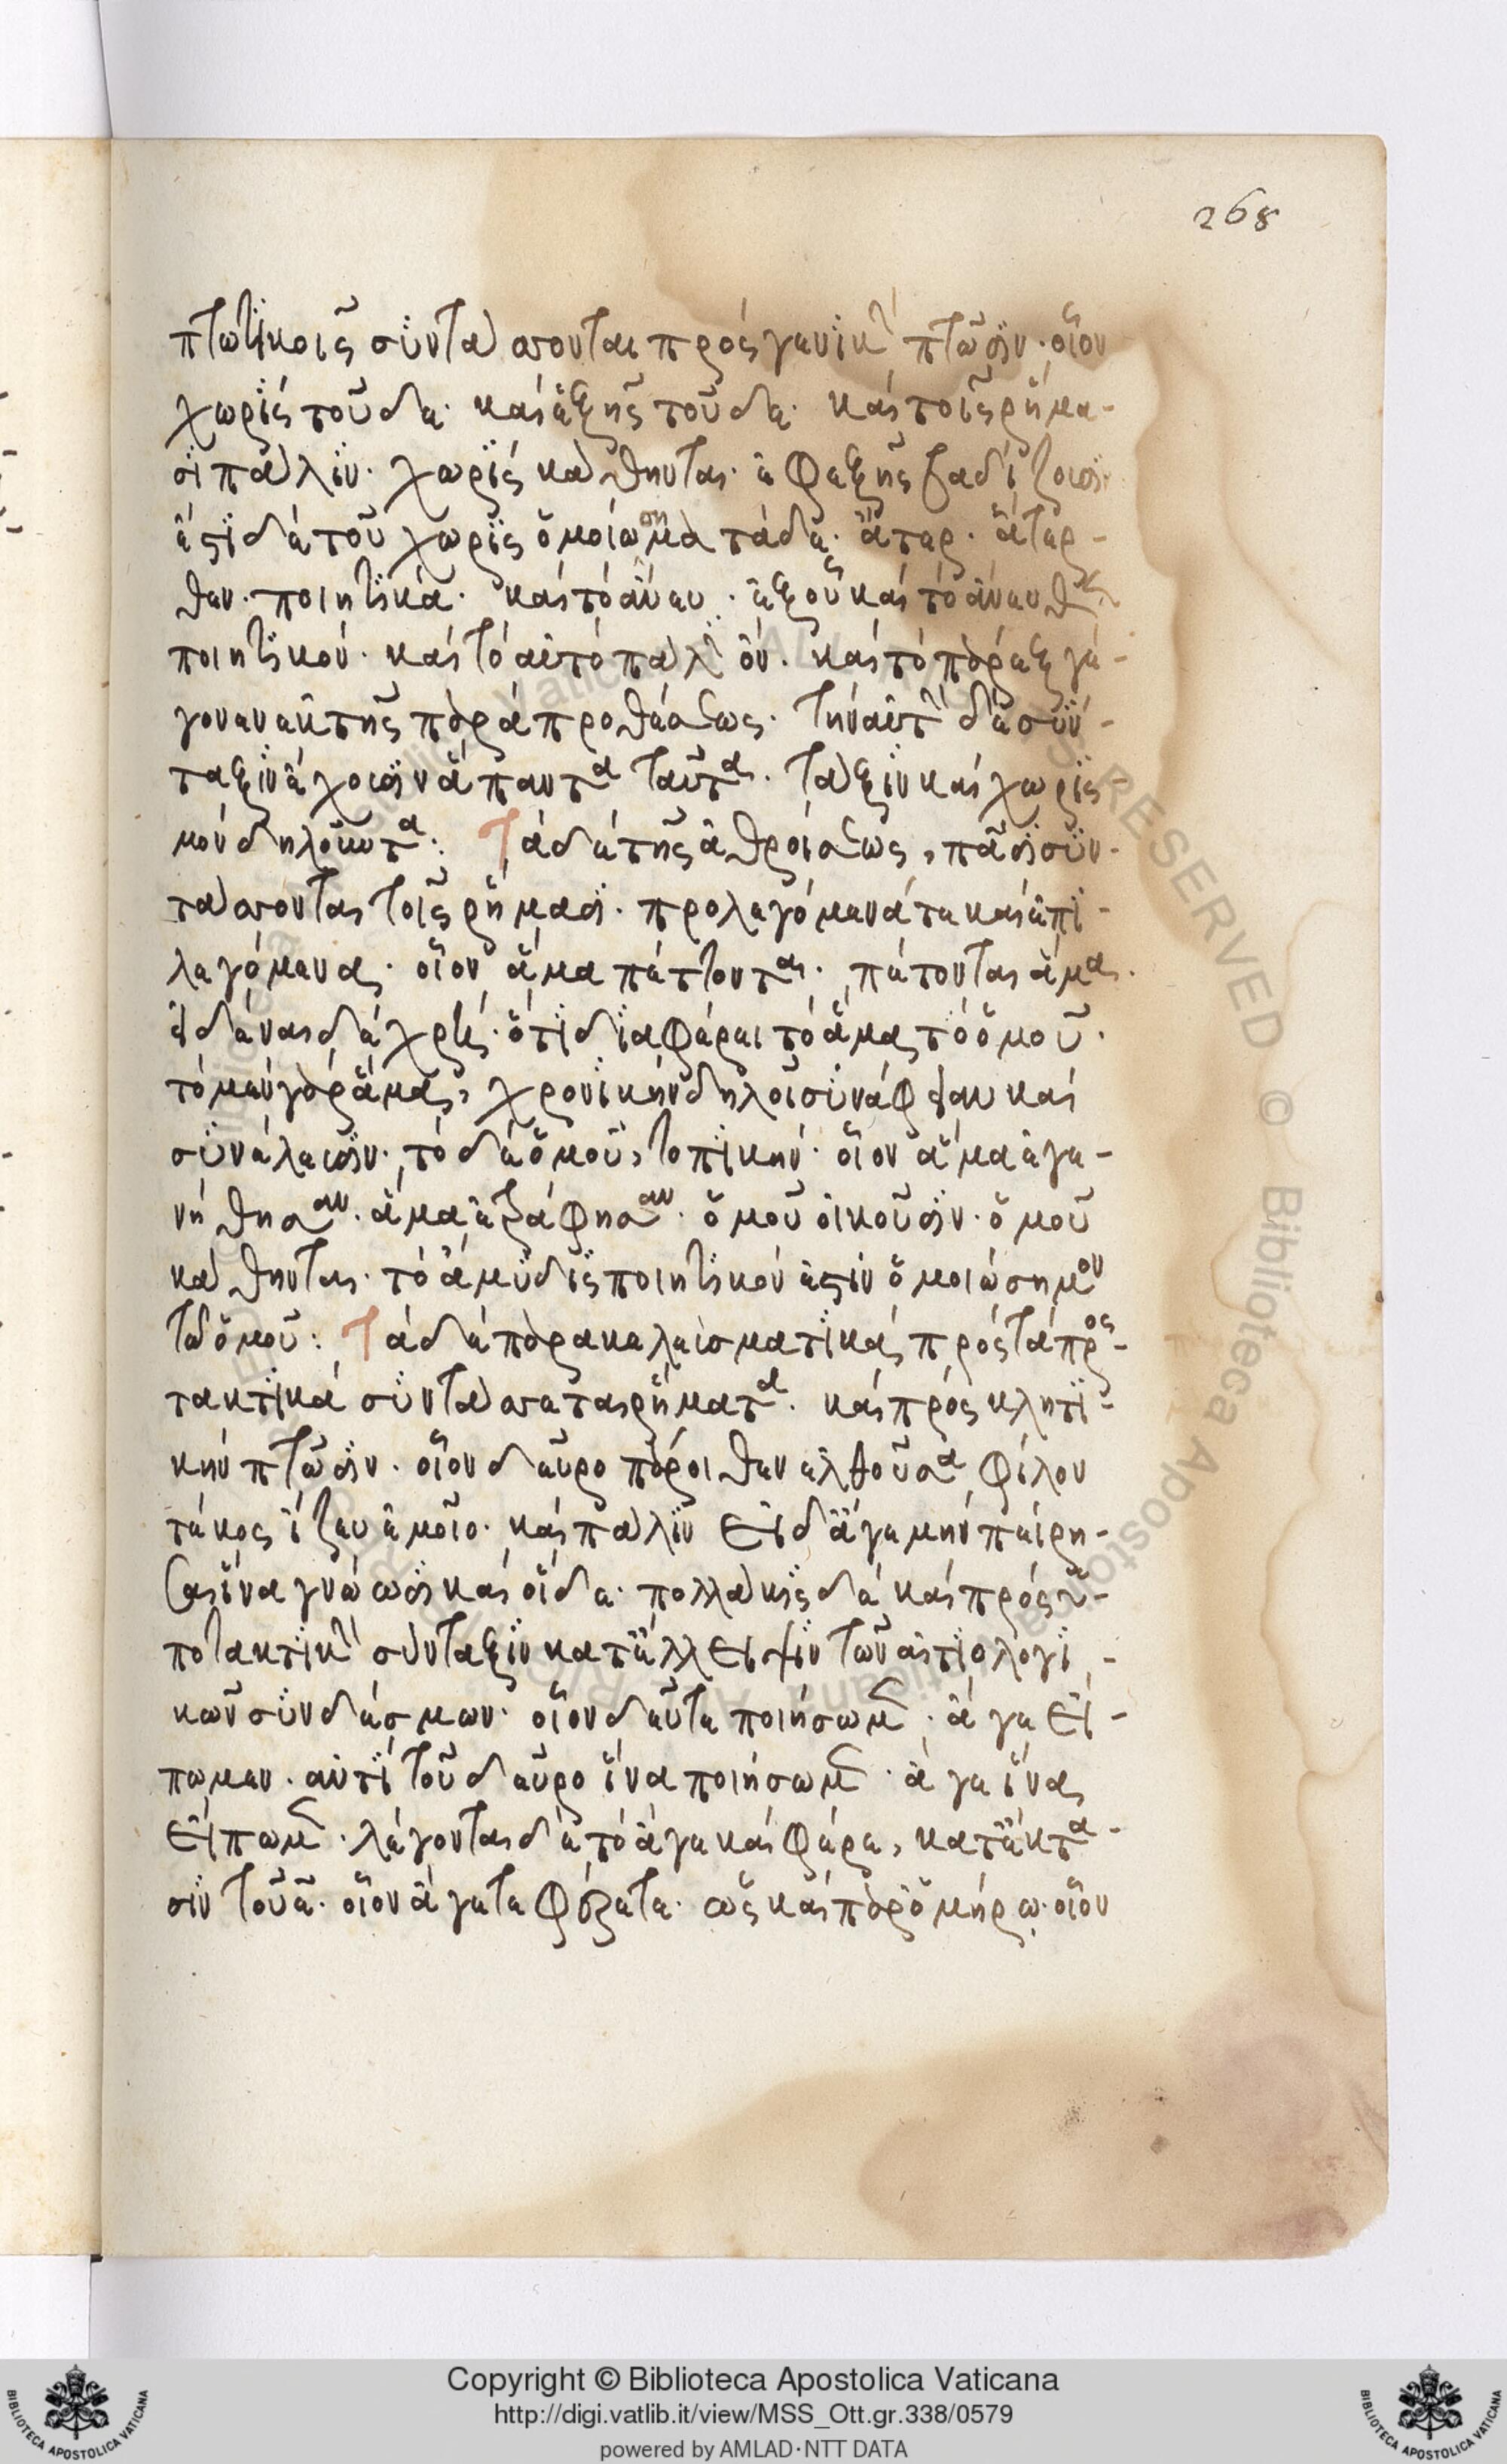 268
πτωτικοῖς συντάσσονται πρὸς γενικὴν πτῶσιν· οἷον
χωρὶς τοῦδε· καὶ ἑξῆς τοῦδε· καὶ τοῖς ῥήμα-
σι πάλιν· χωρὶς κάθηνται· ἐφεξῆς βαδίζουσιν·
ἔστι δὲ τοῦ χωρὶς ὁμοιόσημα τάδε· ἄτερ· ἄτερ-
θεν· ποιητικά· καὶ τὸ ἄνευ· ἐξ οὗ καὶ τὸ ἄνευθε
ποιητικόν· καὶ τὸ αὐτὸ πάλιν ὄν· καὶ τὸ πάρεξ γέ-
γονεν ἐκ τῆς παρὰ προθέσεως· τὴν αὐτὴν δὲ σύν-
ταξιν ἔχουσιν ἅπαντα ταῦτα· τάξιν καὶ χωρισ-
μὸν δηλοῦντα: Τὰ δὲ τῆς ἀθροίσεως, πᾶσι συν-
τάσσονται τοῖς ῥήμασι· προλεγόμενά τε καὶ ἐπι-
λεγόμενα· οἷον ἅμα πέτονται· πέτονται ἅμα·
εἰδέναι δὲ χρὴ· ὅτι διαφέρει τὸ ἅμα, τὸ ὁμοῦ·
τὸ μὲν γὰρ ἅμα, χρονικὴν δηλοῖ συνάφειαν καὶ
συνέλευσιν· τὸ δὲ ὁμοῦ, τοπικήν· οἷον ἅμα ἐγε-
νήθησαν· ἅμα ἐτράφησαν· ὁμοῦ οἰκοῦσιν· ὁμοῦ
κάθηνται· τὸ ἄμυδις ποιητικόν ἐστιν ὁμοιόσημον
τῶ ὁμοῦ: Τὰ δὲ παρακελευσματικὰ, πρὸς τὰ προσ-
τακτικὰ συντάσσεται ῥήματα· καὶ πρὸς κλητι-
κὴν πτῶσιν· οἷον δεῦρο πάροιθεν ἐλθοῦσα φίλον
τέκος ἵζευ ἐμοῖο· καὶ πάλιν εἰ δ' ἄγε μὴν πείρη-
σαι ἵνα γνώωσι καὶ οἵδε· πολλάκις δὲ καὶ πρὸς ὑ-
ποτακτικὴν σύνταξιν κατ' ἔλλειψιν τῶν αἰτιολογι-
κῶν συνδέσμων· οἷον δεῦτε ποιήσωμεν· ἄγε εἴ-
πωμεν· ἀντὶ τοῦ δεῦρο ἵνα ποιήσωμεν· ἄγε ἵνα
εἴπωμεν· λέγονται δὲ τὸ ἄγε καὶ φέρε, κατ' ἔκτα-
σιν τοῦ ε· οἷον ἄγετε φέρετε· ὡς καὶ παρ' ὁμήρω· οἷον
Copyright © Biblioteca Apostolica Vaticana
http://digi.vatlib.it/view/MSS_Ott.gr.338/0579
powered by AMLAD·NTT DATA